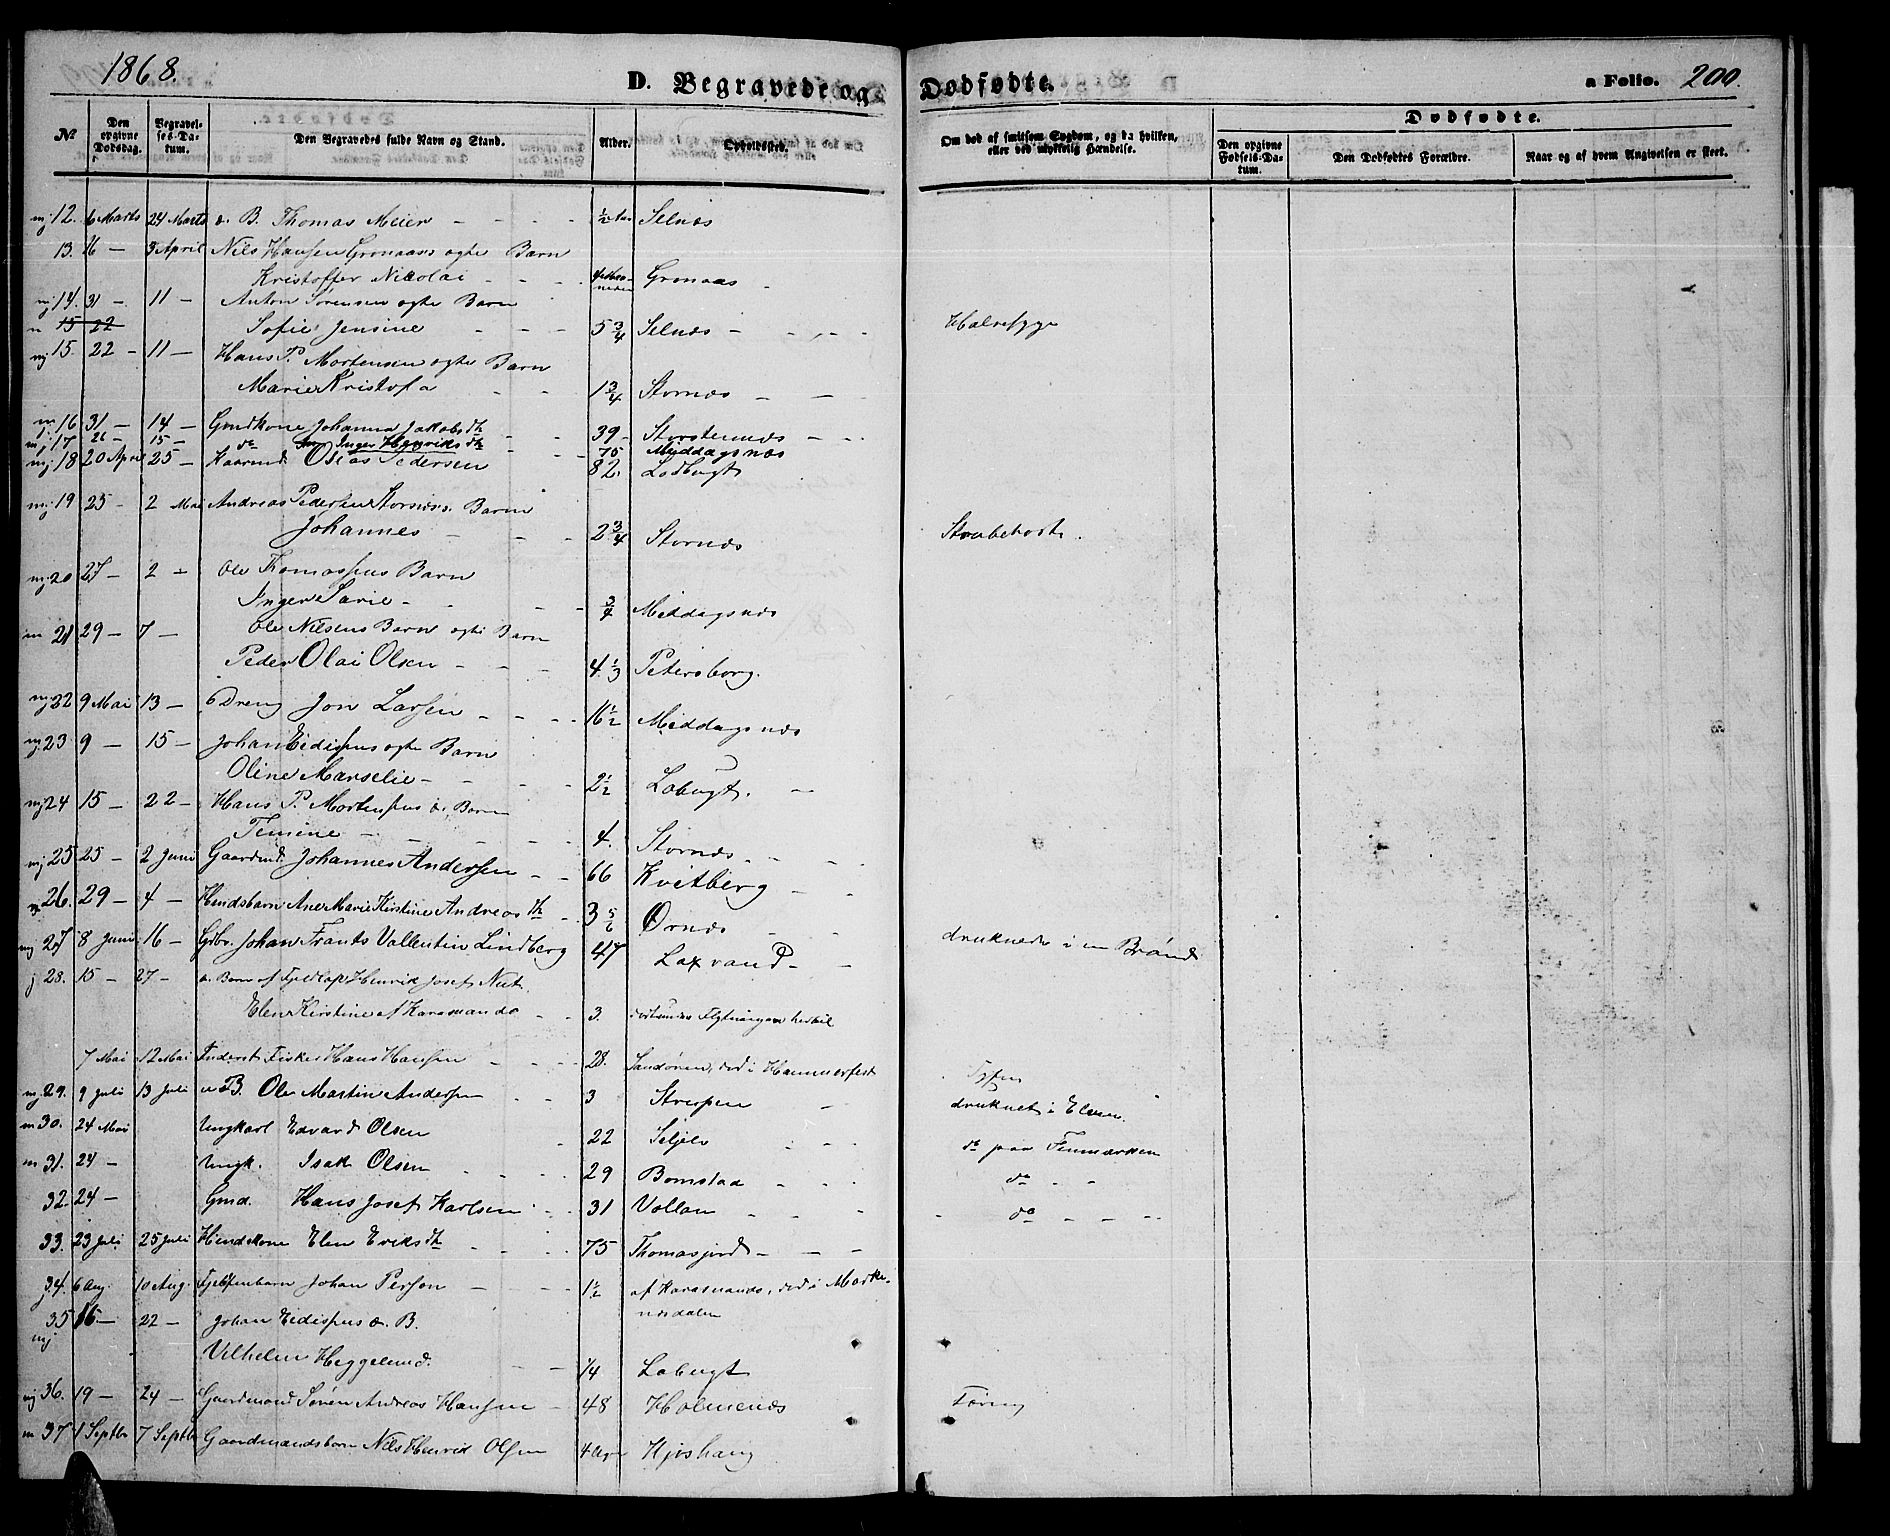 1868.
D. Begravede og Dødfødte.
a Folio. 200.
Nº
Den opgivne Dødsdag.
Begravelses-Datum.
Den Begravedes fulde Navn og Stand.
Alder.
Opholdssted.
Om død af smitsom Sygdom, og da hvilken, eller ved ulykkelig Hændelse.
Dødfødte.
Den opgivne Fødsels-Datum.
Den Dødfødtes Forældre.
Naar og af hvem Angivelsen er skeet.
12. 6 Marts 24 Marts æ. B. Thomas Meier ½ Aar Selnæs
13. 16 — 3 April Nils Hansen Grønaas ægte Barn
Kristoffer Nikolai Grønaas
14. 31 — 11 — Anton Sørensen ægte Barn
15 22
Sofie Jensine 5 ¾ Selnæs Halvesyge
15. 22 — 11 — Hans P. Mortensen ægte Barn
Marie Kristofa 1 ¾ Stornæs
16 31 — 14 — Gmdkone Johanna Jakobsdt 39 Storstennæs
17 26 — 15 — do Inger Henriksdt 75 Middagsnæs
18 20 April 25 — Kaarmd. Olas Pedersen 82. Lodbugt
19 25 — 2 Mai Andreas Pedersen Stornæs Barn
Johannes 2 ¾ Stornæs Strubehoste.
20 27 — 2 — Ole Thomassens Barn
Inger Sarie ¾ Middagsnæs
21 29 — 7 — Ole Nilsens Barn ægte Barn
Peder Olai Olsen 4 ⅓ Petersborg.
22 9 Mai 13 — Dreng Jon Larsen 16 ½ Middagsnæs
23 9 — 15 — Johan Eidissens ægte Barn
Oline Marselie 2 ½ Lobugt.
24 15 — 22 — Hans P. Mortensens æ. Barn
4. Stornæs
25 25 — 2 Juni Gaardmd. Johannes Andersen 66 Kvitberg
26. 29 — 4 — Hmdsbarn Ane Marie Kirstine Andreasdt 3 Ørnæs
27 8 Juni 16 — Gbr. Johan Frants Vallentin Lindberg 47 Laxvand druknede i en Brønd
28. 15 — 27 — æ. Barn af Fjeldlap Henrik Josef Nut.
Elen Kirstine af Karasuando 3.
7 Mai 12 Mai Inderst Fisker Hans Hansen 28. Sandøren, død i Hammerfest
29. 9 Juli 13 Juli u B. Ole Martin Andersen 3 druknet i Elven.
30. 24 Mai Ungkarl Edvard Olsen 22 Seljelv do paa Finmarken
31. 24 — Ungk. Isak Olsen 29 Bomstad do
32. 24 — Gmd. Hans Josef Karlsen 31 Vollan do
33. 23 Juli 25 Juli Hmdskone Elen Eriksdt 75 Thomasjord
34. 6 Aug. 10 Aug. Johan Person 1½ af Karasuando, død i Marke-
næsdalen
35 16 — 22 — Johan Eidissens æ. B.
Vilhelm Heggelund. ¼ Lobugt
36. 19 — 24 — Gaardmand Søren Andreas Hansen 48 Holmenæs Tæring
37 1 Septbr 7 Septbr Gaardmandsbarn Nils Henrik Olsen